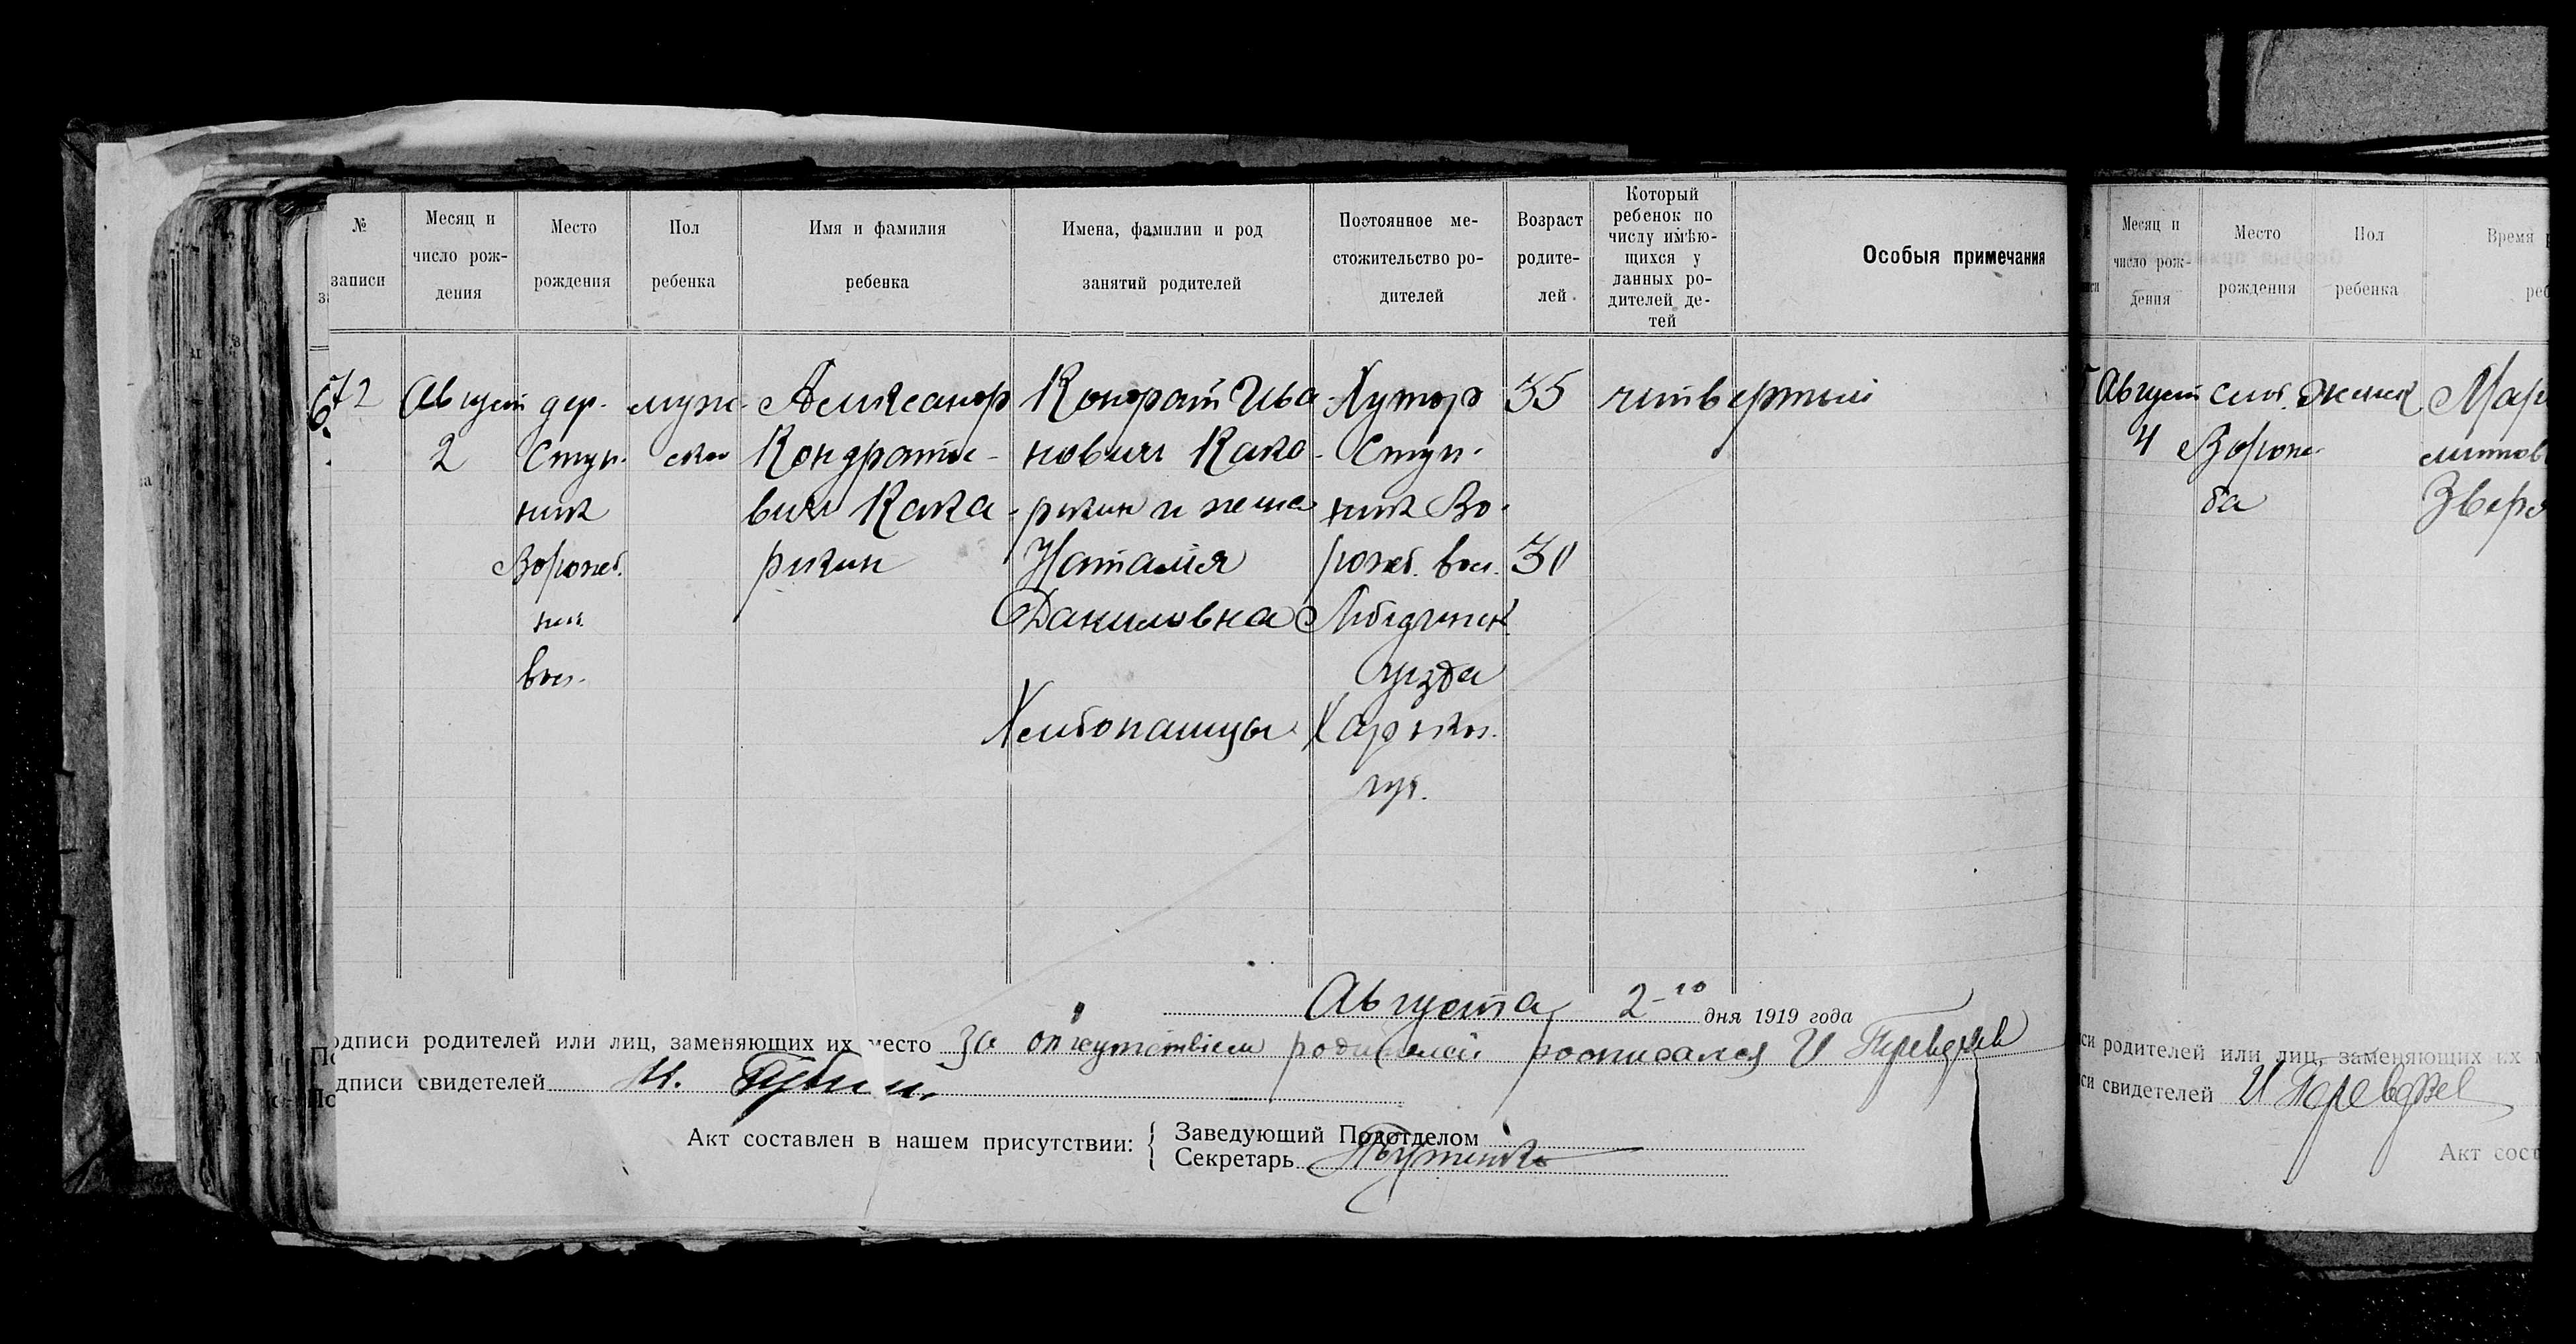 № записи
Месяц и число рождения
Место рождения
Пол ребенка
Имя и фамилия ребенка
Имена, фамилии и род занятий родителей
Постоянное местожительство родителей
Возраст родителей
Который ребенок по числу имѣющихся у данных родителей детей
Особыя примечания
72
Август
2
дер.
Ступ-
ник
Ворожб.
вол.
муж-
ской
Александр
Кондратье-
вич Кака-
рикин
Кондрат Ива-
нович Кака-
рикин и жена
Наталия
Даниловна
Хлебопашцы
Хутор
Ступ-
ник Во-
рожб. вол.
Лебединск.
уезда
Харьков.
губ.
35
30
четвертый
Августа 2-го дня 1919 года
Подписи родителей или лиц, заменяющих их место за отсутствием родителей росписался И Переверзев
Подписи свидетелей И.
Акт составлен в нашем присутствии:
Заведующий Подотделом
Секретарь
Месяц и число рождения
Место рождения
Пол ребенка
Время
Август
4
слоб.
Ворож-
ба
женск
Мар
Звере
родителей или лиц, заменяющих их
свидетелей И Переверзев
Акт сост